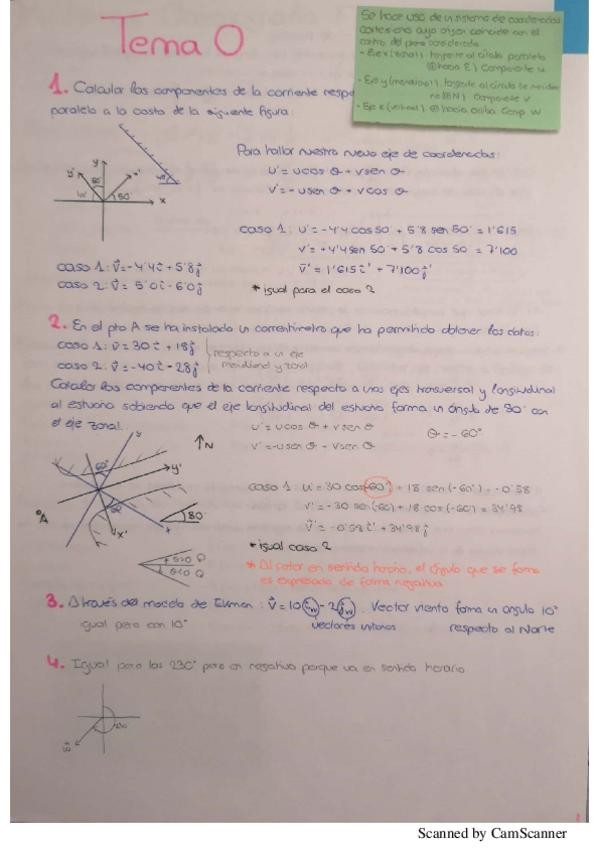 Tema 0
Se hace uso de un sistema de coordenadas
cartesiano cuyo origen coincide con el
centro del plano considerado.
- Eje x (zonal), tangente al círculo paralelo
(⊕ hacia E) Componente u
- Eje y (meridional), tangente al círculo de meridia
no (⊕N) Componente v
- Eje z (vertical), ⊕ hacia arriba Comp. w
1. Calcular las componentes de la corriente respe
paralelo a la costa de la siguiente figura:
Para hallar nuestro nuevo eje de coordenadas:
u' = u cos θ + v sen θ
v' = -u sen θ + v cos θ
y
y'
x'
x
50°
caso 1: u' = -4'4 cos 50 + 5'8 sen 50 = 1'615
v' = +4'4 sen 50 + 5'8 cos 50 = 7'100
v̄' = 1'615 î' + 7'100 ĵ'
* igual para el caso 2
caso 1: v⃗ = -4'4 î + 5'8 ĵ
caso 2: v⃗ = 5'0 î - 6'0 ĵ
2. En el pto A se ha instalado un correntímetro que ha permitido obtener los datos:
caso 1: v⃗ = 30 î + 18 ĵ
caso 2: v⃗ = -40 î - 28 ĵ
respecto a un eje
meridional y zonal
Calcular las componentes de la corriente respecto a unos ejes trasversal y longitudinal
al estuario sabiendo que el eje longitudinal del estuario forma un ángulo de 30° con
el eje zonal.
u' = u cos θ + v sen θ
v' = -u sen θ + v sen θ
θ = -60°
y
N
60°
y'
A
x'
x
caso 1: u' = 30 cos(-60°) + 18 sen(-60°) = -0'58
v' = -30 sen(-60) + 18 cos(-60) = 34'98
v̄' = -0'58 î' + 34'98 ĵ
* igual caso 2
θ>0
θ<0
* Al rotar en sentido horario, el ángulo que se forma
es expresado de forma negativa
3. A través del modelo de Ekman: v⃗ = 10 îw - 2 ĵw. Vector viento forma un angulo 10°
igual pero con 10°
vectores unitarios
respecto al Norte
4. Igual para los 230° pero en negativo porque va en sentido horario
Scanned by CamScanner